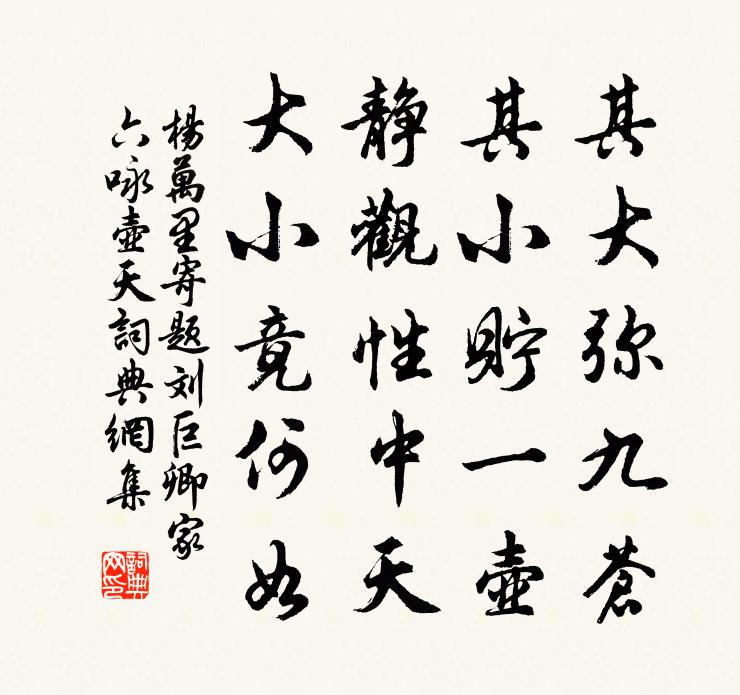 其大弥九蒼
其小貯一壺
静觀性中天
大小竟何如
楊萬里寄題刘巨卿家
六咏壺天詞典網集
詞典
网印